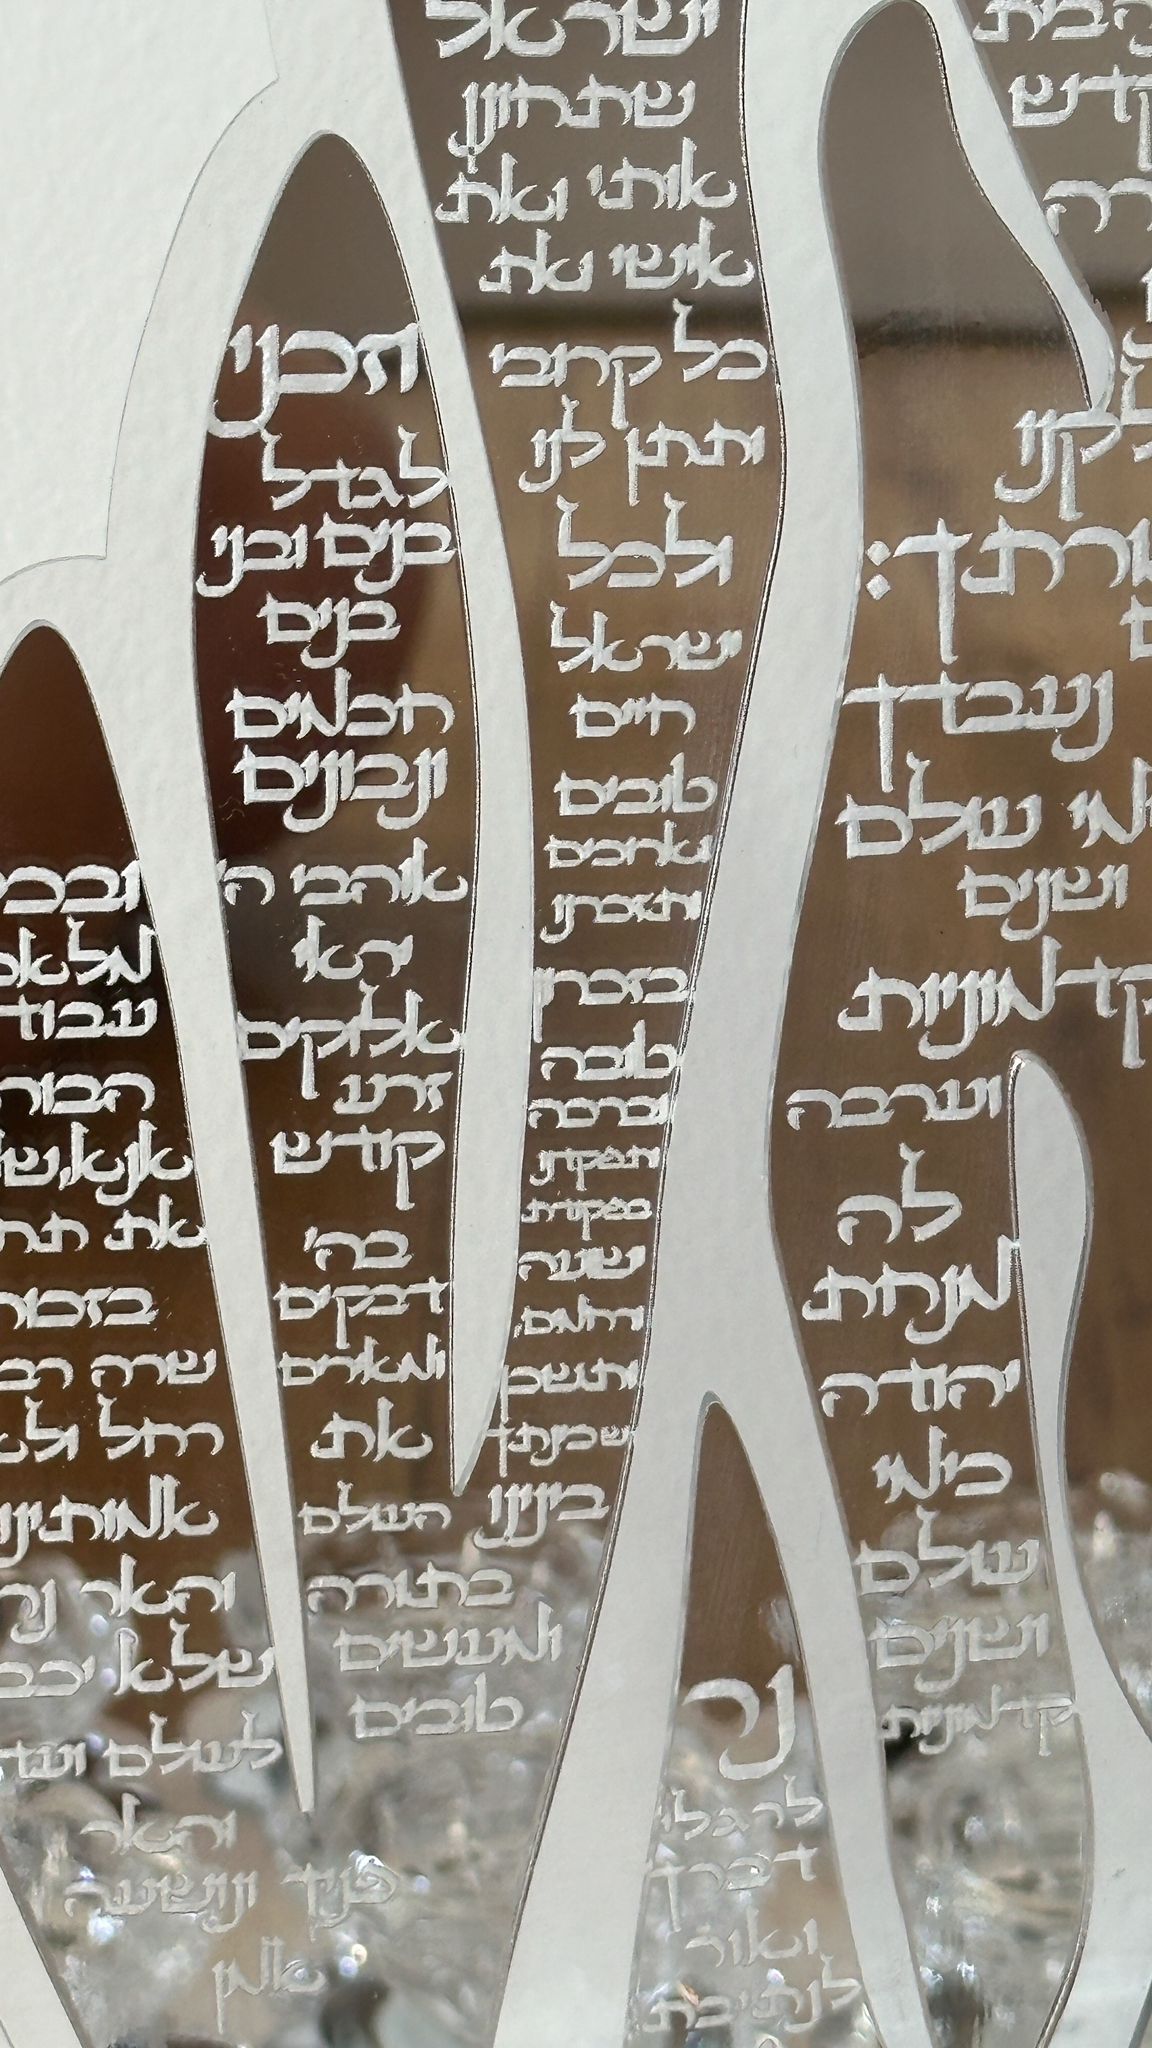 הבית
קדש
רה
לקנו
ורתך:
נעבדך
מי עולם
ושנים
קדמוניות
וערבה
לה
מנחת
יהודה
כימי
עולם
ושנים
קדמוניות
נר
לרגלי
דברך
ואור
לנתיבתי
ישראל
שתחונן
אותי ואת
אישי ואת
כל קרובי
ותתן לנו
ולכל
ישראל
חיים
טובים
וארוכים
ותזכרנו
בזכרון
טובה
וברכה
ותפקדנו
בפקודת
ישועה
ורחמים
ותשכן
שכינתך
בינינו
וזכני
לגדל
בנים ובני
בנים
חכמים
ונבונים
אוהבי ה'
יראי
אלוקים
זרע
קודש
בה'
דבקים
ומאירים
את
העולם
בתורה
ובמעשים
טובים
ובכל
מלאכ
עבוד
הבור
אנא, ש
את תח
בזכות
שרה רב
רחל ולא
אמותינו
והאר נר
שלא יכב
לעולם ועד
והאר
פניך ונושעה
אמן